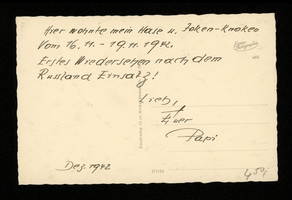 Hier wohnte mein Hase u. Zoken-Knoken
Vom 16.11.-19.11.1942.
Erstes Wiedersehen nach dem
Russland Einsatz!
Lieb,
Euer
Papi
Dez. 1942
4,50